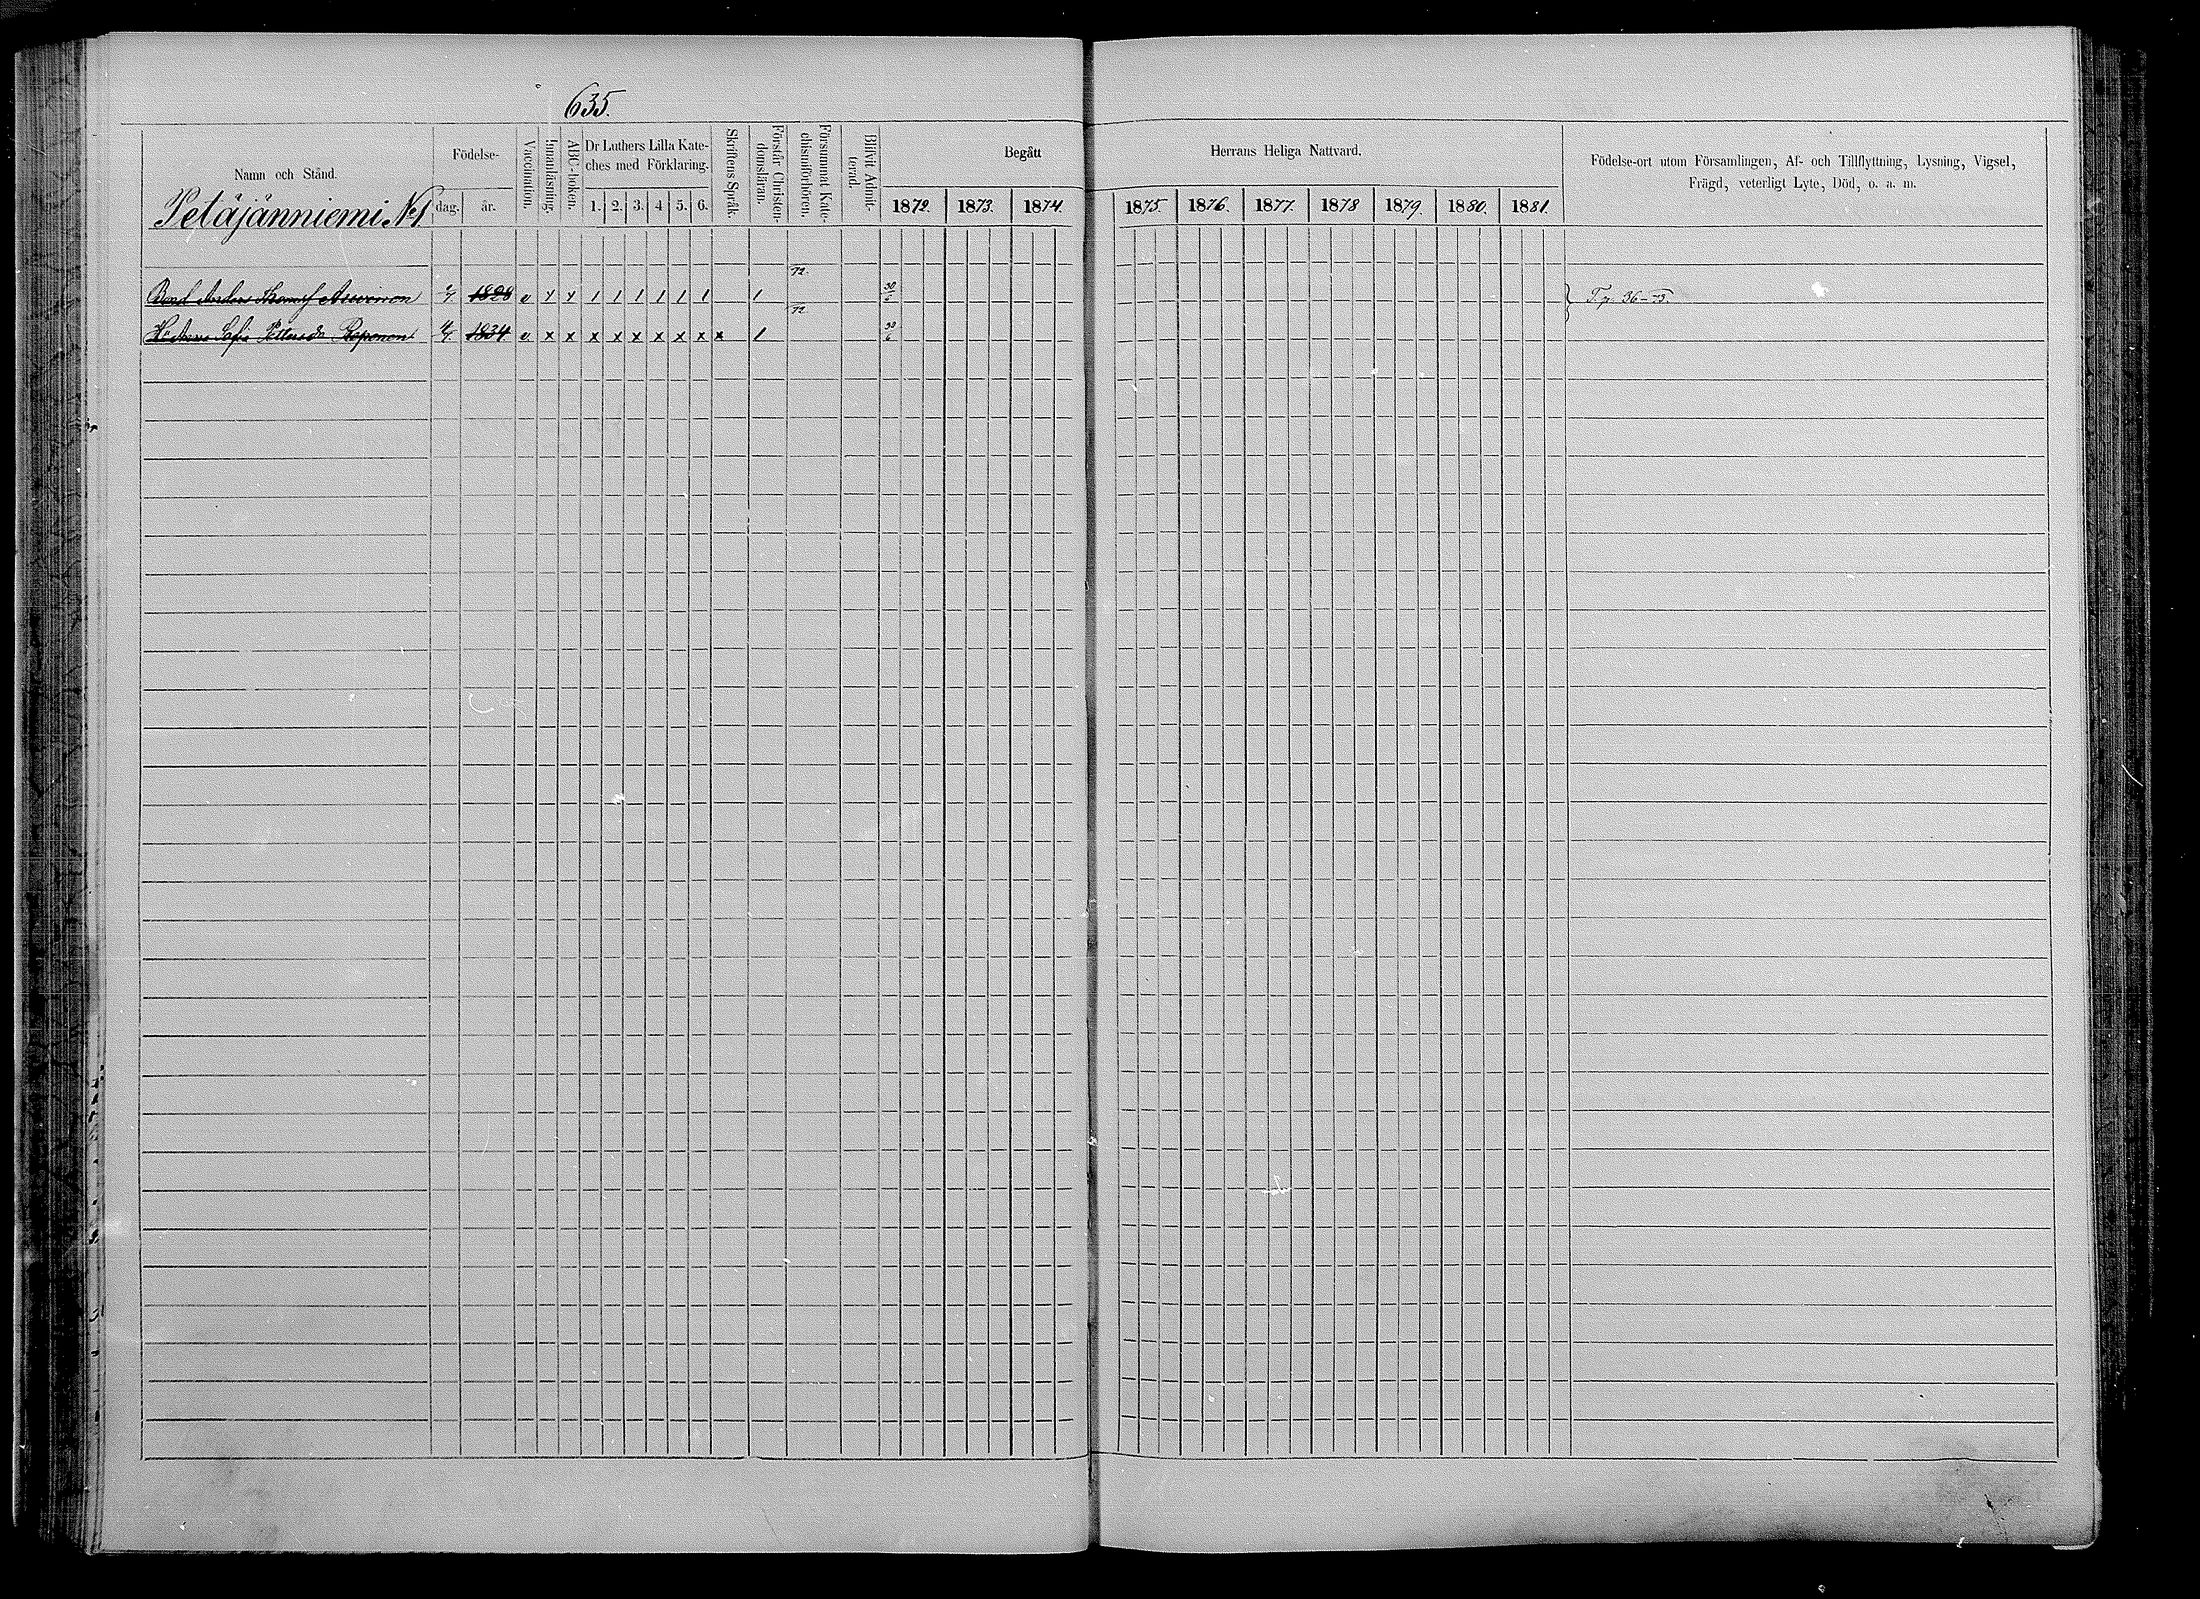 635.
Namn och Stånd.
Födelse-
dag. år.
Vaccination.
Innanläsning.
ABC-boken.
Dr Luthers Lilla Kate-
ches med Förklaring.
1. 2. 3. 4 5. 6.
Skriftens Språk.
Förstår Christen-
domsläran.
Försummat Kate-
chismiförhören.
Blifvit Admit-
terad.
Begått
1872. 1873. 1874.
Herrans Heliga Nattvard.
1875. 1876. 1877. 1878 1879. 1880. 1881.
Födelse-ort utom Församlingen, Af- och Tillflyttning, Lysning, Vigsel,
Frägd, veterligt Lyte, Död, o. a. m.
Petäjänniemi № 1.
72.
Bond Anders 1828 v x x 1 1 1 1 1 1 1 30/6
T. p. 36-73.
72
Sofia Pettersdr 1834 v. x x x x x x x x x 1 30/6